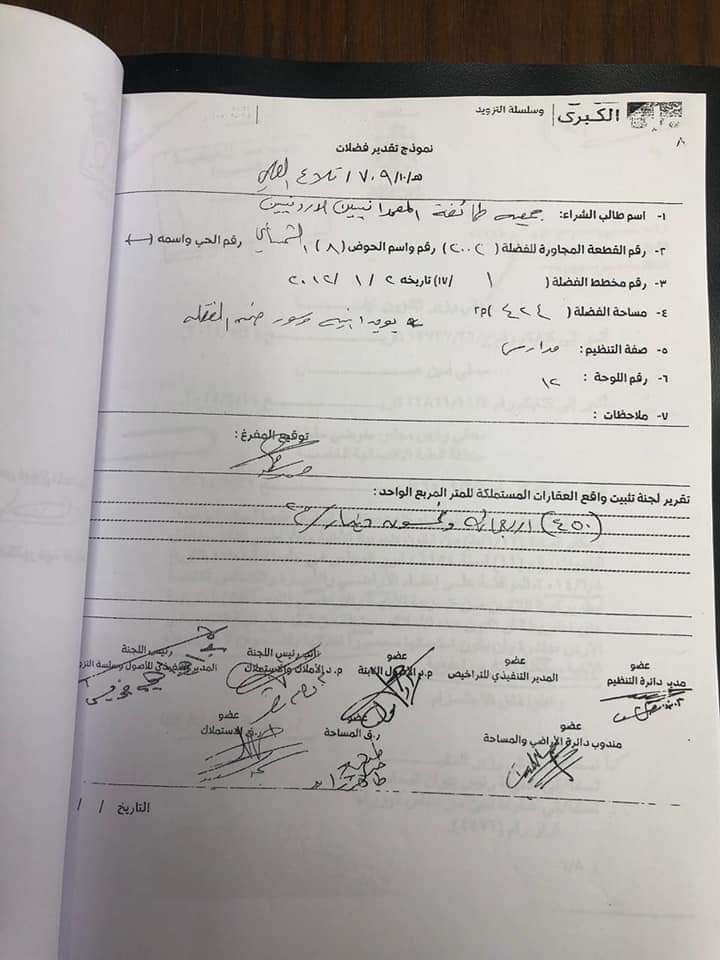 الكبرى | وسلسلة التزويد
٨
نموذج تقدير فضلات
هـ/١٠/٧٠٩/ تلاع العلي
١- اسم طالب الشراء: جمعية طائفة المعمدانيين الاردنيين
٢- رقم القطعة المجاورة للفضلة (٢٠٠٢) رقم واسم الحوض (٨) رقم الحي واسمه (ــ)
٣- رقم مخطط الفضلة ( ١ /١٧) تاريخه ٢ / ١ / ٢٠١٢
٤- مساحة الفضلة ( ٤٢٤ )م٢
يوجد ابنية وسور ضمن الفضله
٥- صفة التنظيم: مدارس
٦- رقم اللوحة: ١٢
٧- ملاحظات :
توقيع المفرغ :
تقرير لجنة تثبيت واقع العقارات المستملكة للمتر المربع الواحد:
(٤٥٠) اربعمائة وخمسون دينار/م٢
عضو
مدير دائرة التنظيم
عضو
المدير التنفيذي للتراخيص
عضو
نائب رئيس اللجنة
م. د الأملاك والاستملاك
رئيس اللجنة
المدير التنفيذي للأصول وسلسة التزو
عضو
مندوب دائرة الأراضي والمساحة
عضو
ر.ق المساحة
عضو
ر.ق الاستملاك
التاريخ / /